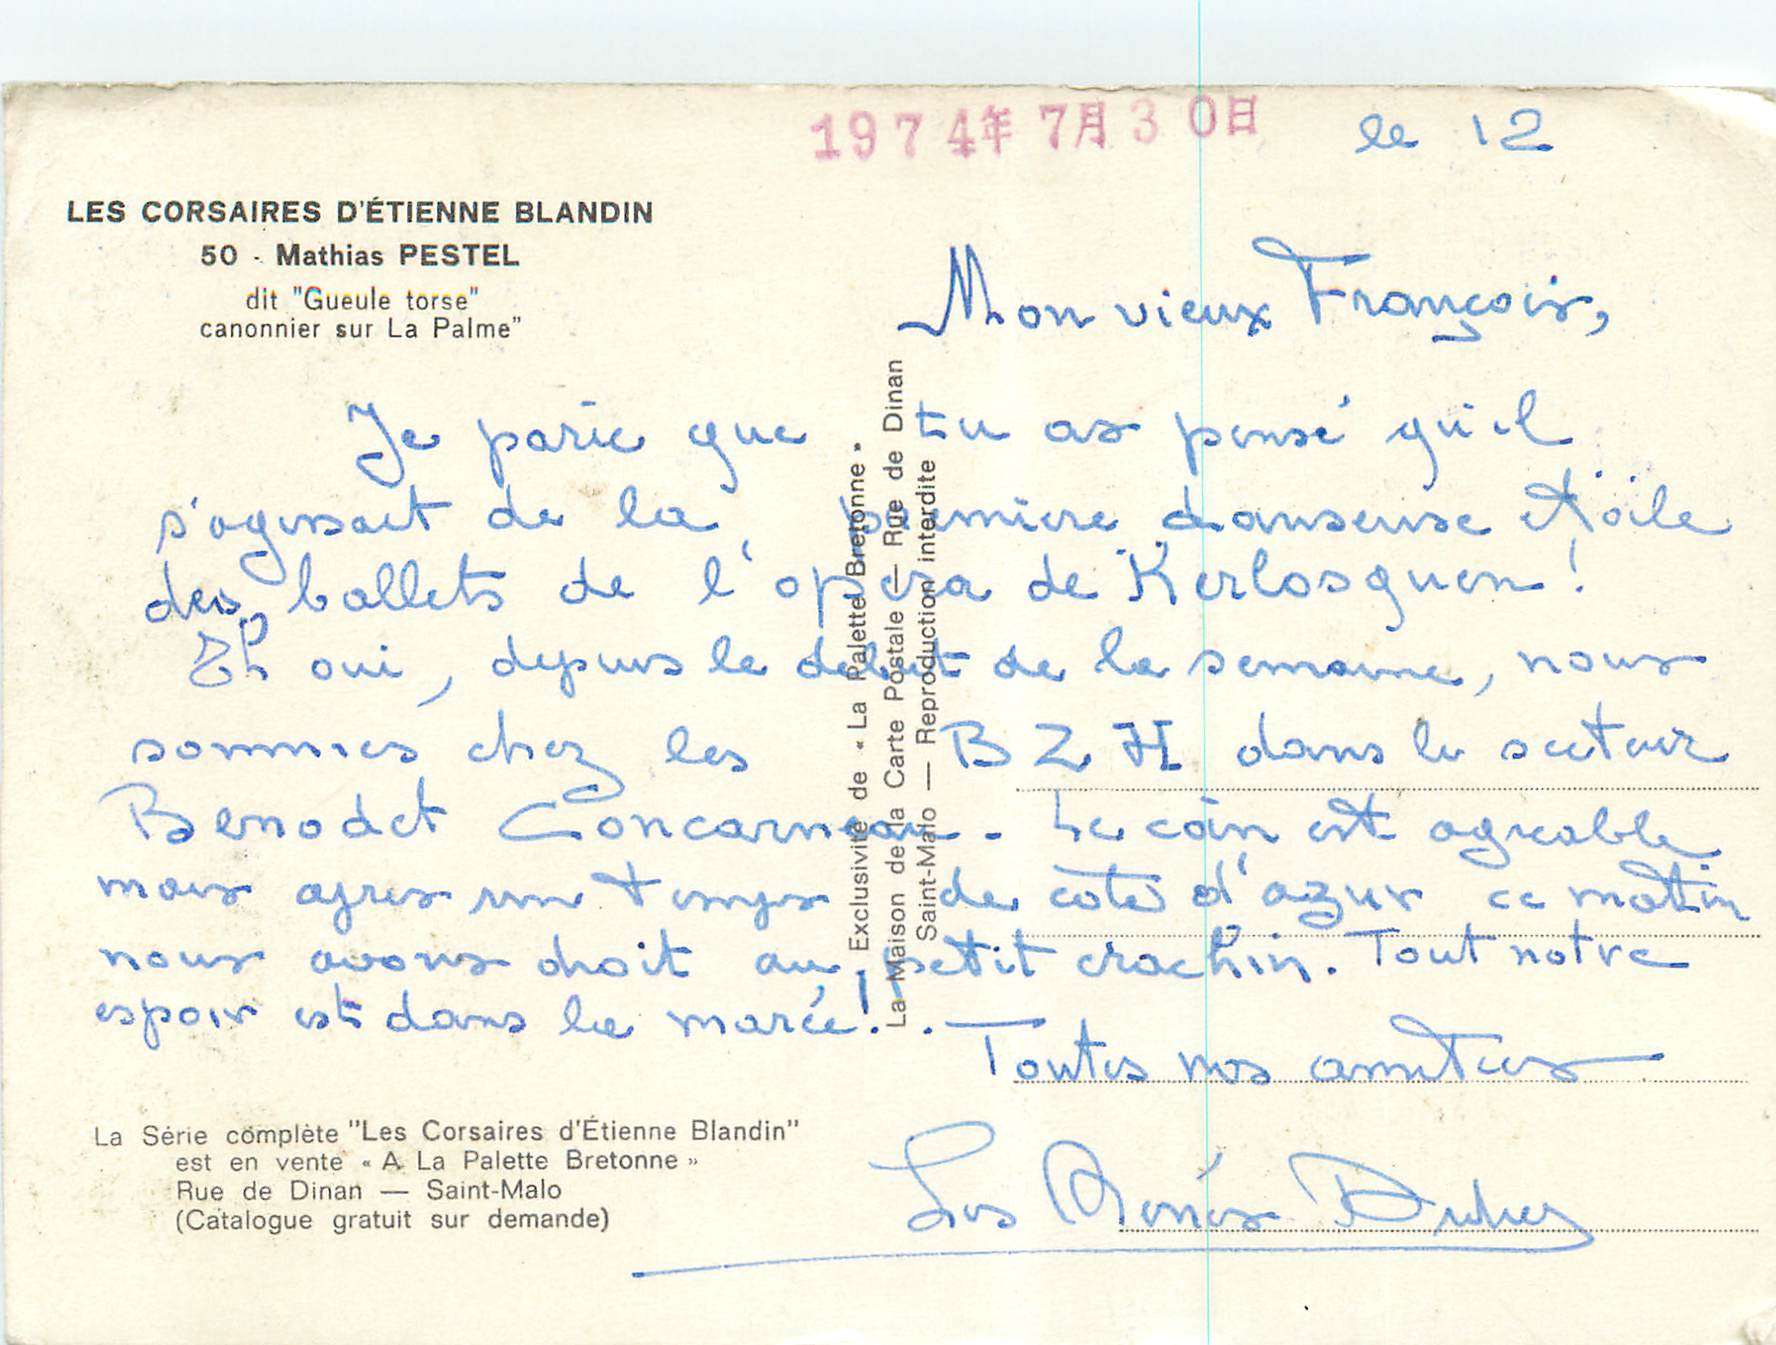 1974年7月30日
le 12
LES CORSAIRES D'ÉTIENNE BLANDIN
50 - Mathias PESTEL
dit "Gueule torse"
canonnier sur La Palme"
Mon vieux François,
Je parie que tu as pensé qu'il
s'agissait de la première danseuse étoile
des ballets de l'opéra de Kerlosguen !
Eh oui, depuis le début de la semaine, nous
sommes chez les BZH dans le secteur
Benodet Concarneau - Le coin est agréable
mais après un temps de cote d'azur ce matin
nous avons droit au petit crachin. Tout notre
espoir est dans la marée !!.
Toutes nos amitiés
Les Renés
Exclusivité de « La Palette Bretonne »
La Maison de la Carte Postale — Rue de Dinan
Saint-Malo — Reproduction interdite
La Série complète "Les Corsaires d'Étienne Blandin"
est en vente « A La Palette Bretonne »
Rue de Dinan — Saint-Malo
(Catalogue gratuit sur demande)